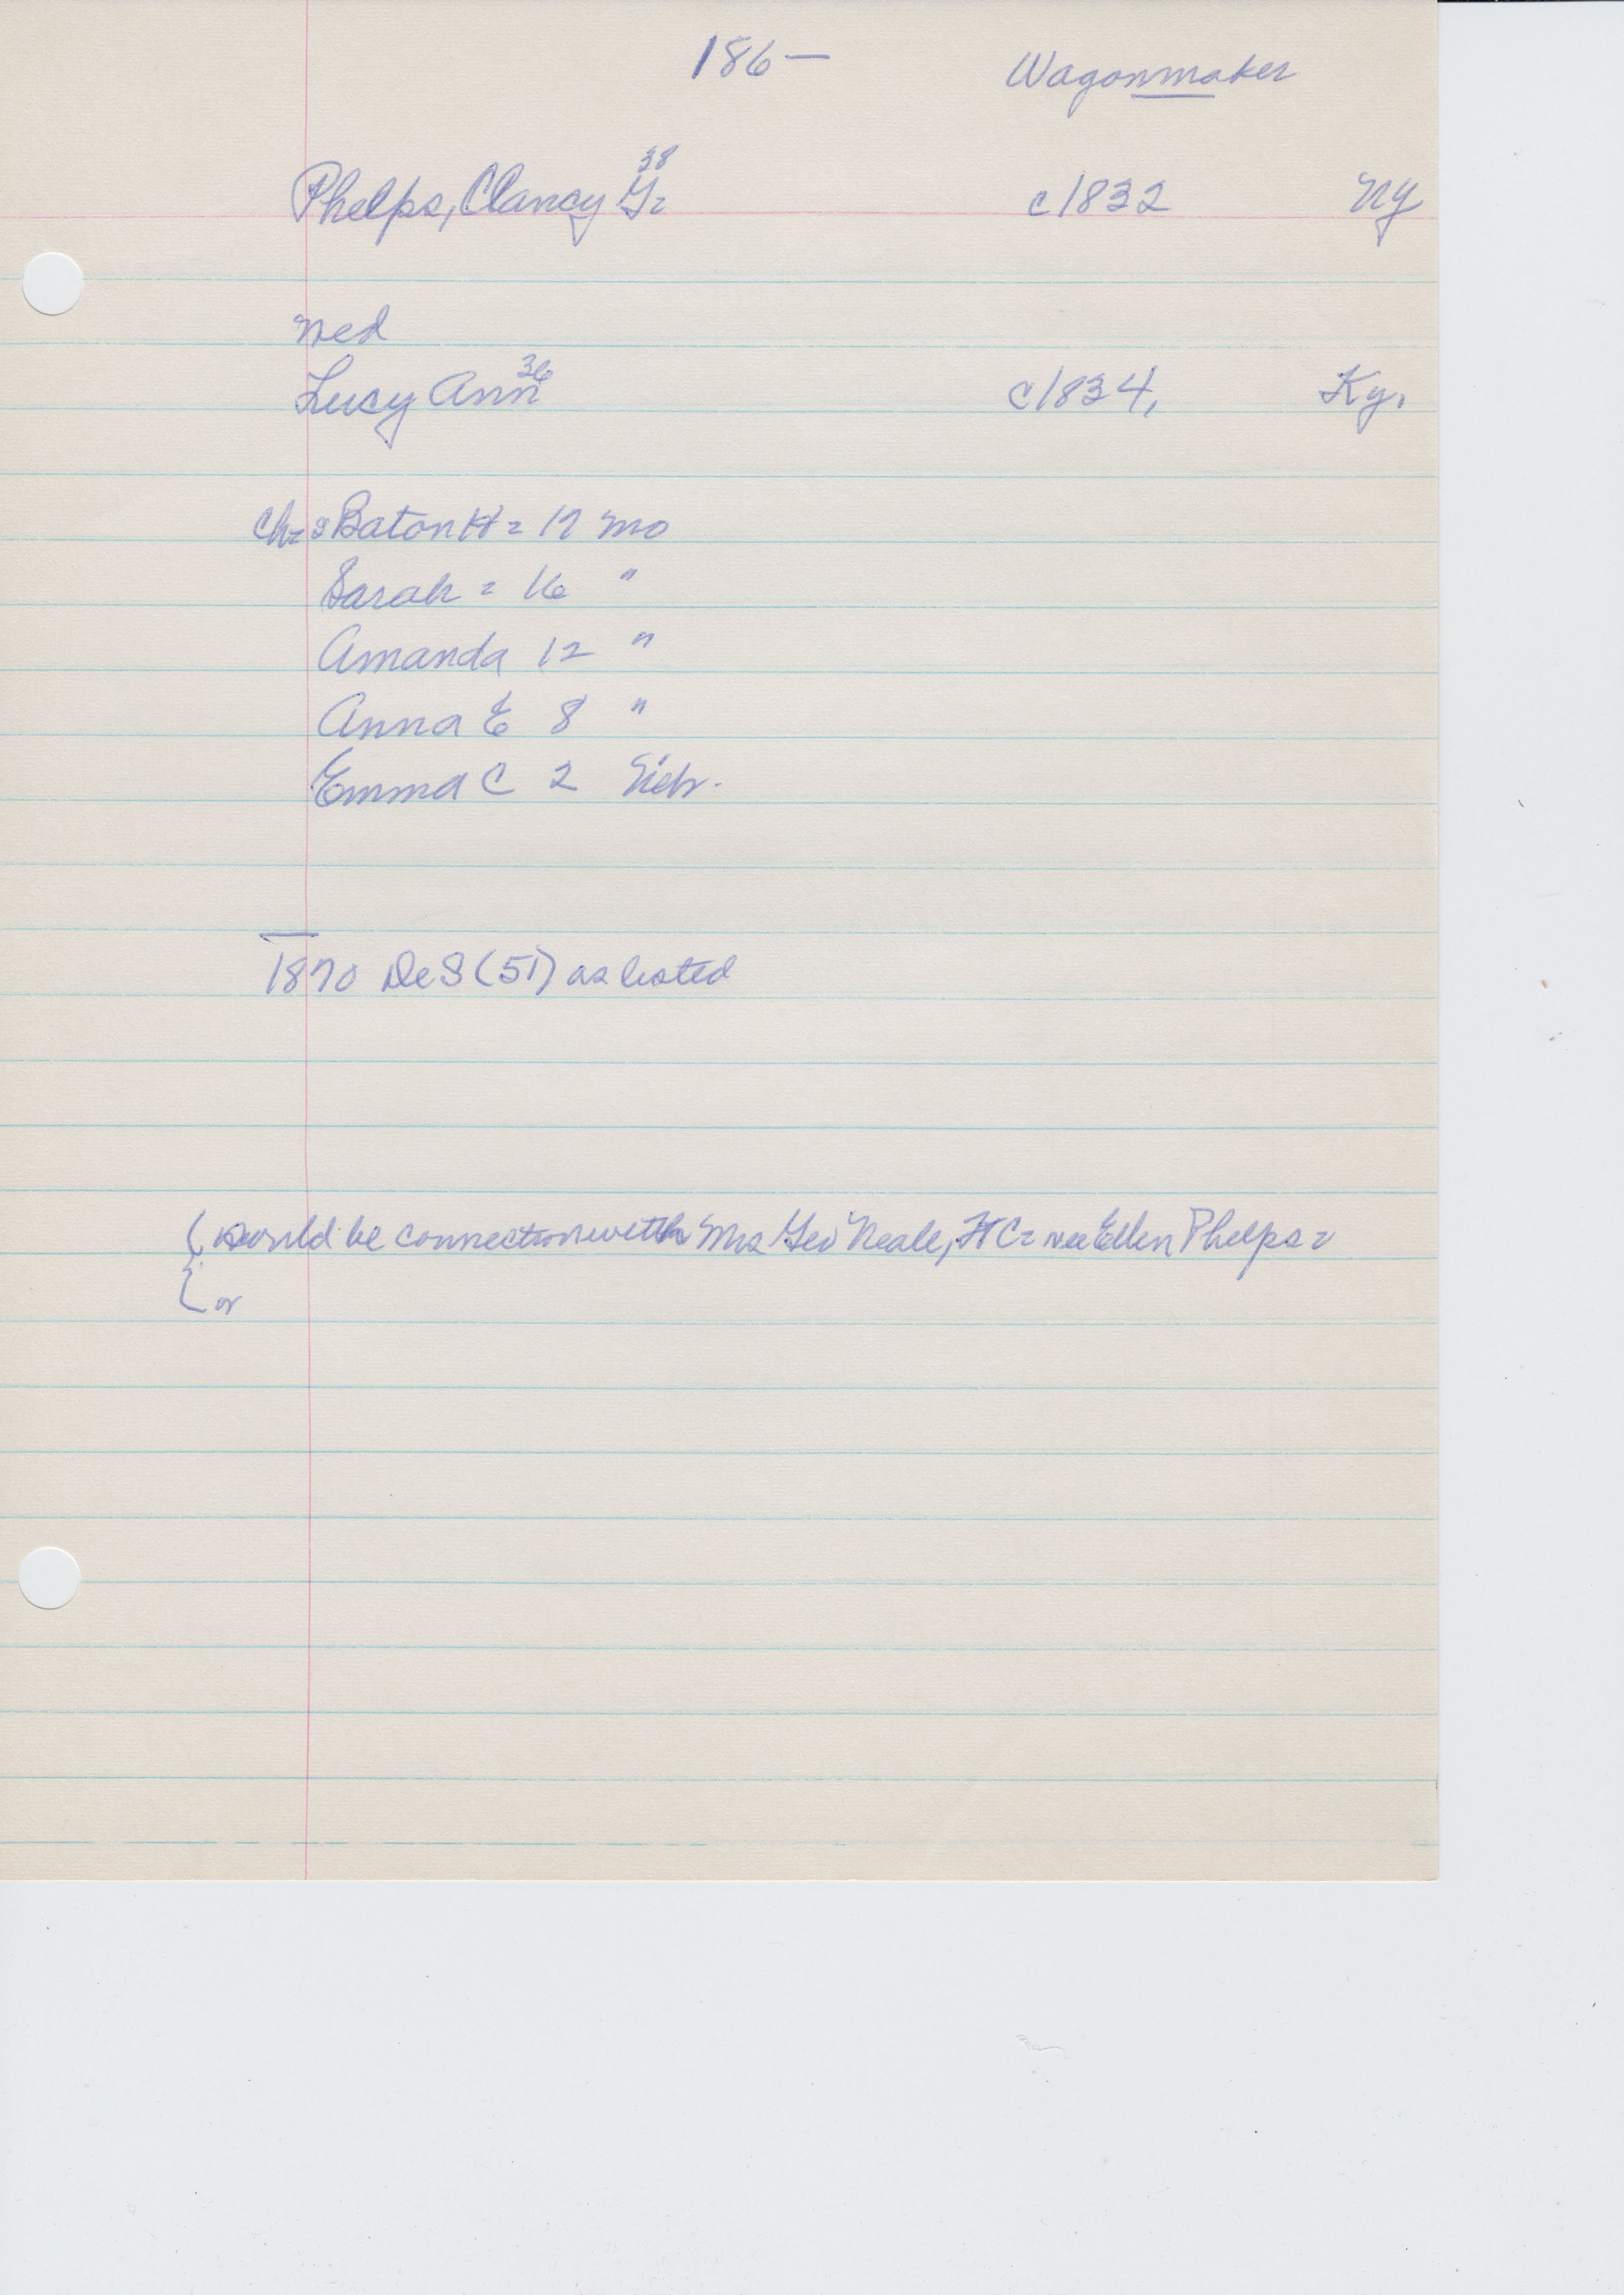 186— Wagonmaker
38
Phelps, Clancy G= c1832 NY
med
36
Lucy Ann c1834, Ky.
Ch= Baton H = 17 Mo
Sarah = 16 "
Amanda 12 "
Anna E 8 "
Emma C 2 Nebr.
1870 De S (51) as listed
be connection with Mrs Geo Neale, FtC= nee Ellen Phelps =
or